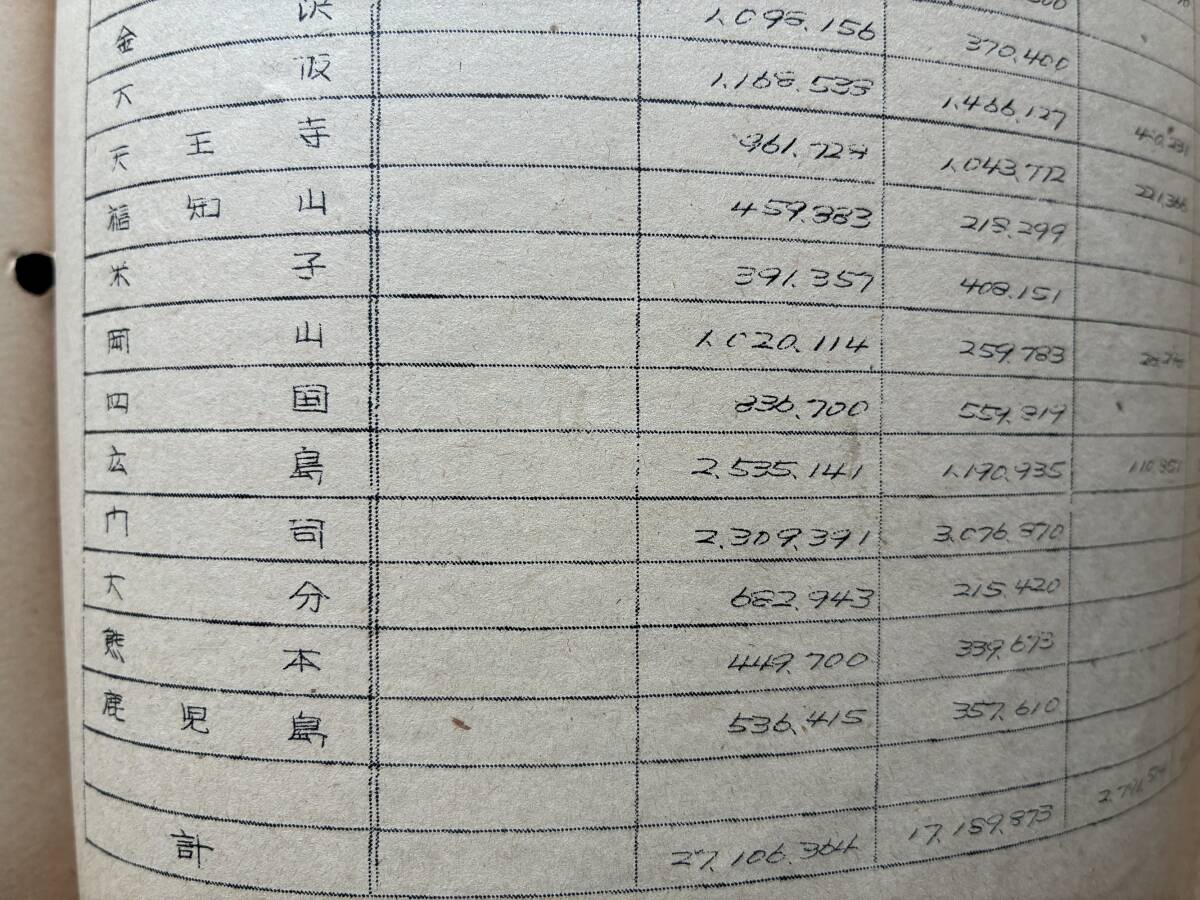 金沢 1,095.156 370.400
大阪 1,168.533 1,466.127
天王寺 361.724 1,043.772 221.366
福知山 459.883 218.299
米子 391.357 408.151
岡山 1,020.114 259.783
四国 836.700 559.819
広島 2,535.141 1,190.935 110.851
門司 2,309.391 3,076.870
大分 682.943 215.420
熊本 449.700 339.673
鹿児島 536.415 357.610
計 27,106.364 17,159.873